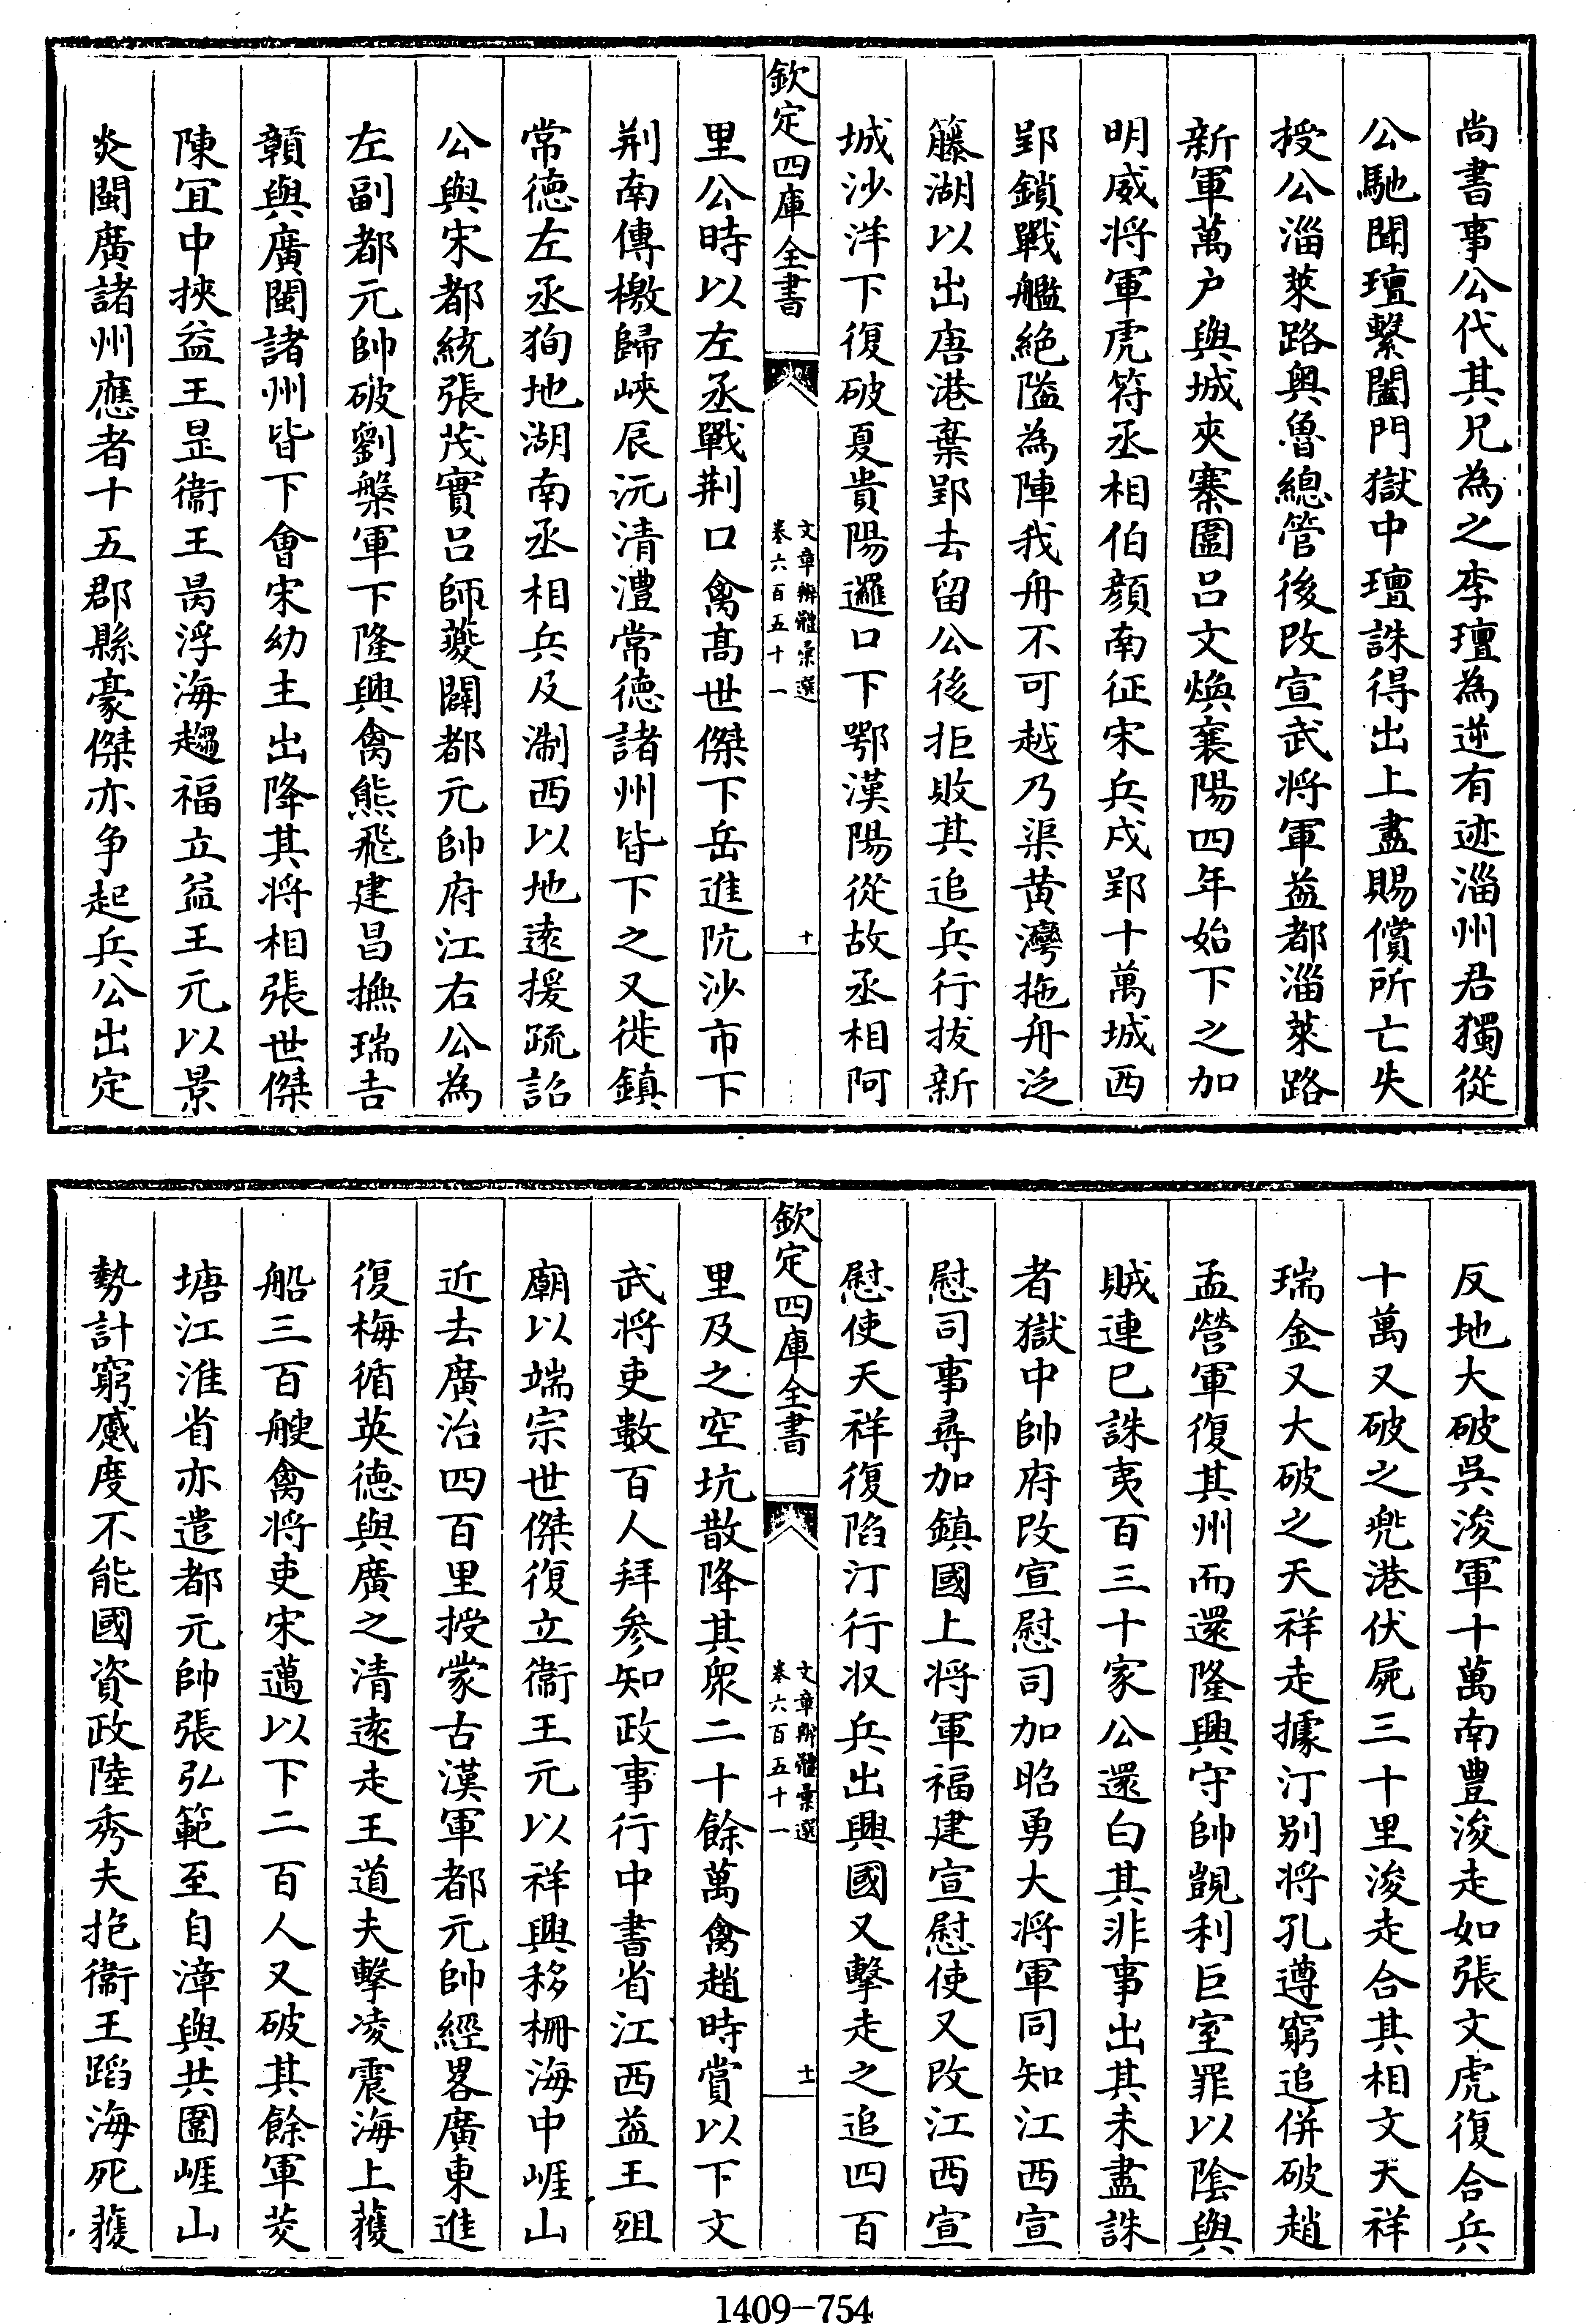 尚書事公代其兄為之李璮為逆有迹淄州君獨從
公馳聞璮繫闔門獄中璮誅得出上盡賜償所亡失
授公淄萊路奥魯總管後改宣武将軍益都淄萊路
新軍萬户與城夾寨圍呂文煥襄陽四年始下之加
明威将軍虎符丞相伯顔南征宋兵戍郢十萬城西
郢鎖戰艦絶隘為陣我舟不可越乃渠黄灣拖舟泛
籐湖以出唐港棄郢去留公後拒敗其追兵行拔新
城沙洋下復破夏貴陽邏口下鄂漢陽從故丞相阿
欽定四庫全書
文章辨體彚選
卷六百五十一
十
里公時以左丞戰荆口禽髙世傑下岳進阬沙市下
荆南傳檄歸峽辰沅清澧常徳諸州皆下之又徙鎮
常徳左丞狥地湖南丞相兵及淛西以地逺援疏詔
公與宋都統張茂實呂師夔闢都元帥府江右公為
左副都元帥破劉槃軍下隆興禽熊飛建昌撫瑞吉
贑與廣閩諸州皆下會宋幼主出降其将相張世傑
陳宜中挾益王昰衞王昺浮海趨福立益王元以景
炎閩廣諸州應者十五郡縣豪傑亦争起兵公出定
反地大破吳浚軍十萬南豐浚走如張文虎復合兵
十萬又破之兠港伏屍三十里浚走合其相文天祥
瑞金又大破之天祥走據汀别将孔遵窮追併破趙
孟營軍復其州而還隆興守帥覬利巨室罪以陰與
賊連已誅夷百三十家公還白其非事出其未盡誅
者獄中帥府改宣慰司加昭勇大将軍同知江西宣
慰司事尋加鎮國上将軍福建宣慰使又改江西宣
慰使天祥復陷汀行收兵出興國又擊走之追四百
欽定四庫全書
文章辨體彚選
卷六百五十一
十一
里及之空坑散降其衆二十餘萬禽趙時賞以下文
武将吏數百人拜参知政事行中書省江西益王殂
廟以端宗世傑復立衞王元以祥興移栅海中崕山
近去廣治四百里授蒙古漢軍都元帥經畧廣東進
復梅循英徳與廣之清逺走王道夫擊凌震海上獲
船三百艘禽将吏宋邁以下二百人又破其餘軍茭
塘江淮省亦遣都元帥張弘範至自漳與共圍崕山
勢計窮蹙度不能國資政陸秀夫抱衞王蹈海死獲
1409-754